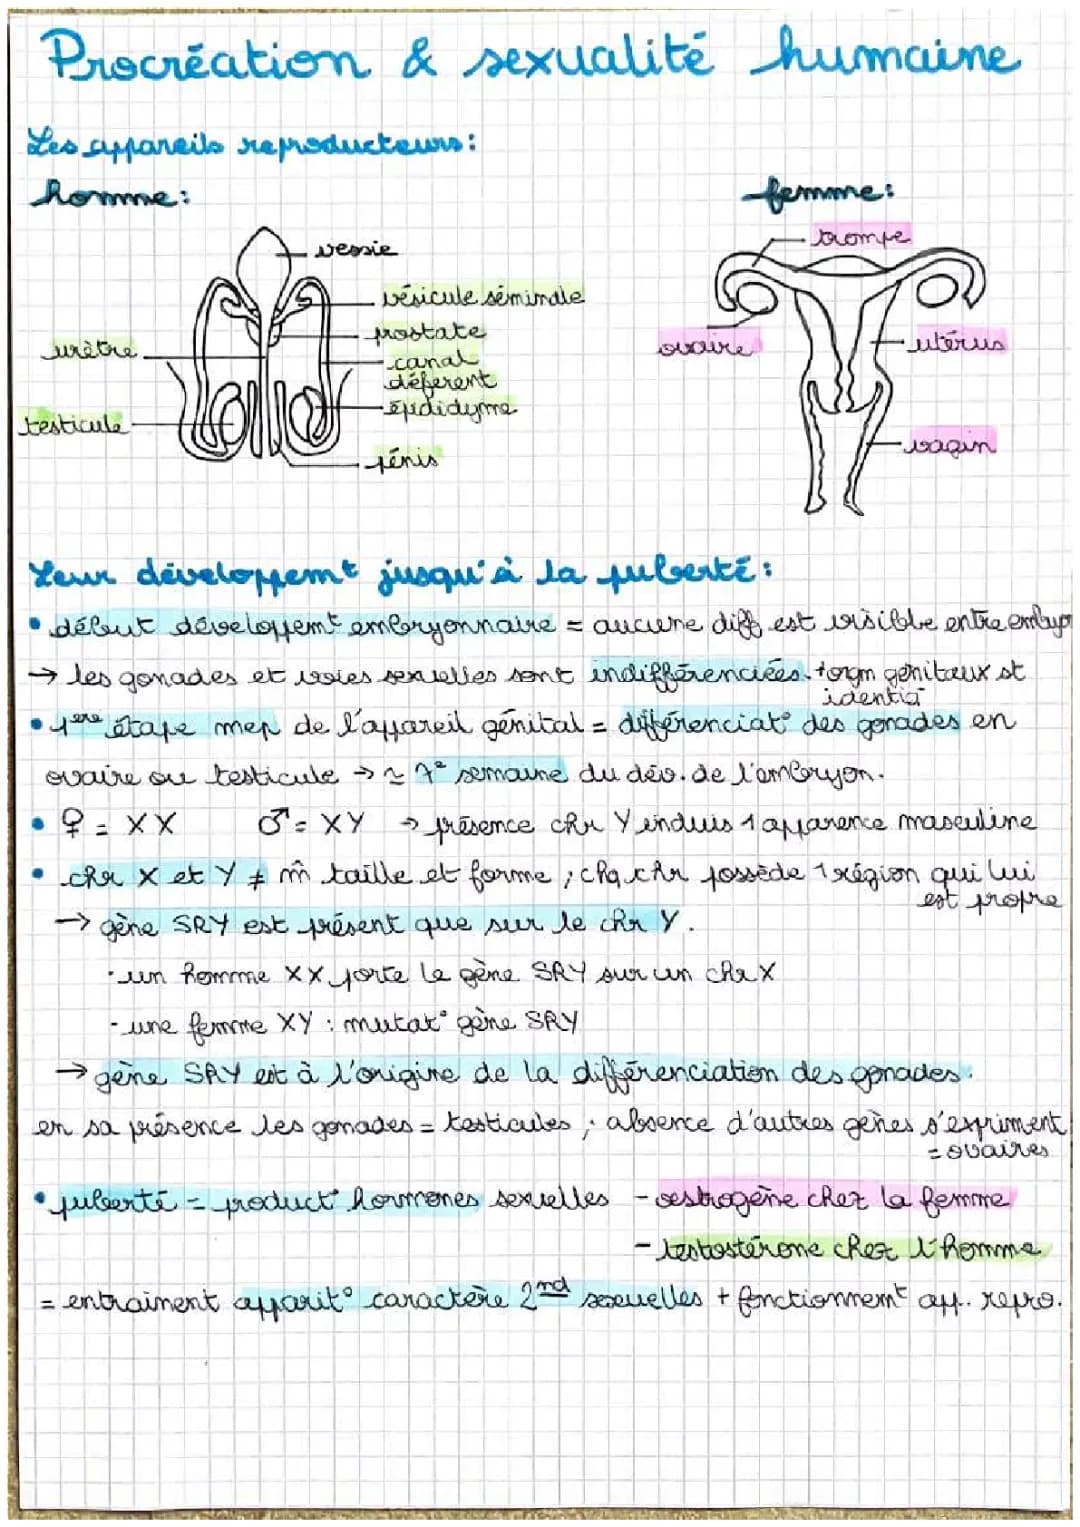 Procréation & sexualité humaine
Les appareils reproducteurs :
homme :
femme :
vessie
vésicule séminale
prostate
canal déférent
épididyme
pénis
urètre
testicule
trompe
ovaire
utérus
vagin
Leur développemt jusqu'à la puberté :
• début développemt embryonnaire = aucune diff est visible entre embryo
→ les gonades et voies sexuelles sont indifférenciées. + orgn génitaux st
identiq
• 1ère étape mep de l'appareil génital = différenciat° des gonades en
ovaire ou testicule → ≃ 7e semaine du dév. de l'embryon.
• ♀ = XX ♂ = XY → présence chr Y induis 1 apparence masculine
• chr X et Y ≠ m̂ taille et forme ; chq chr possède 1 région qui lui
est propre
→ gène SRY est présent que sur le chr Y.
- un homme XX porte le gène SRY sur un chr X
- une femme XY : mutat° gène SRY
→ gène SRY est à l'origine de la différenciation des gonades.
en sa présence les gonades = testicules ; absence d'autres gènes s'expriment
= ovaires
• puberté = product° hormones sexuelles - oestrogène chez la femme
- testostérone chez l'homme
= entrainent apparit° caractère 2nd sexuelles + fonctionnemt app. repro.